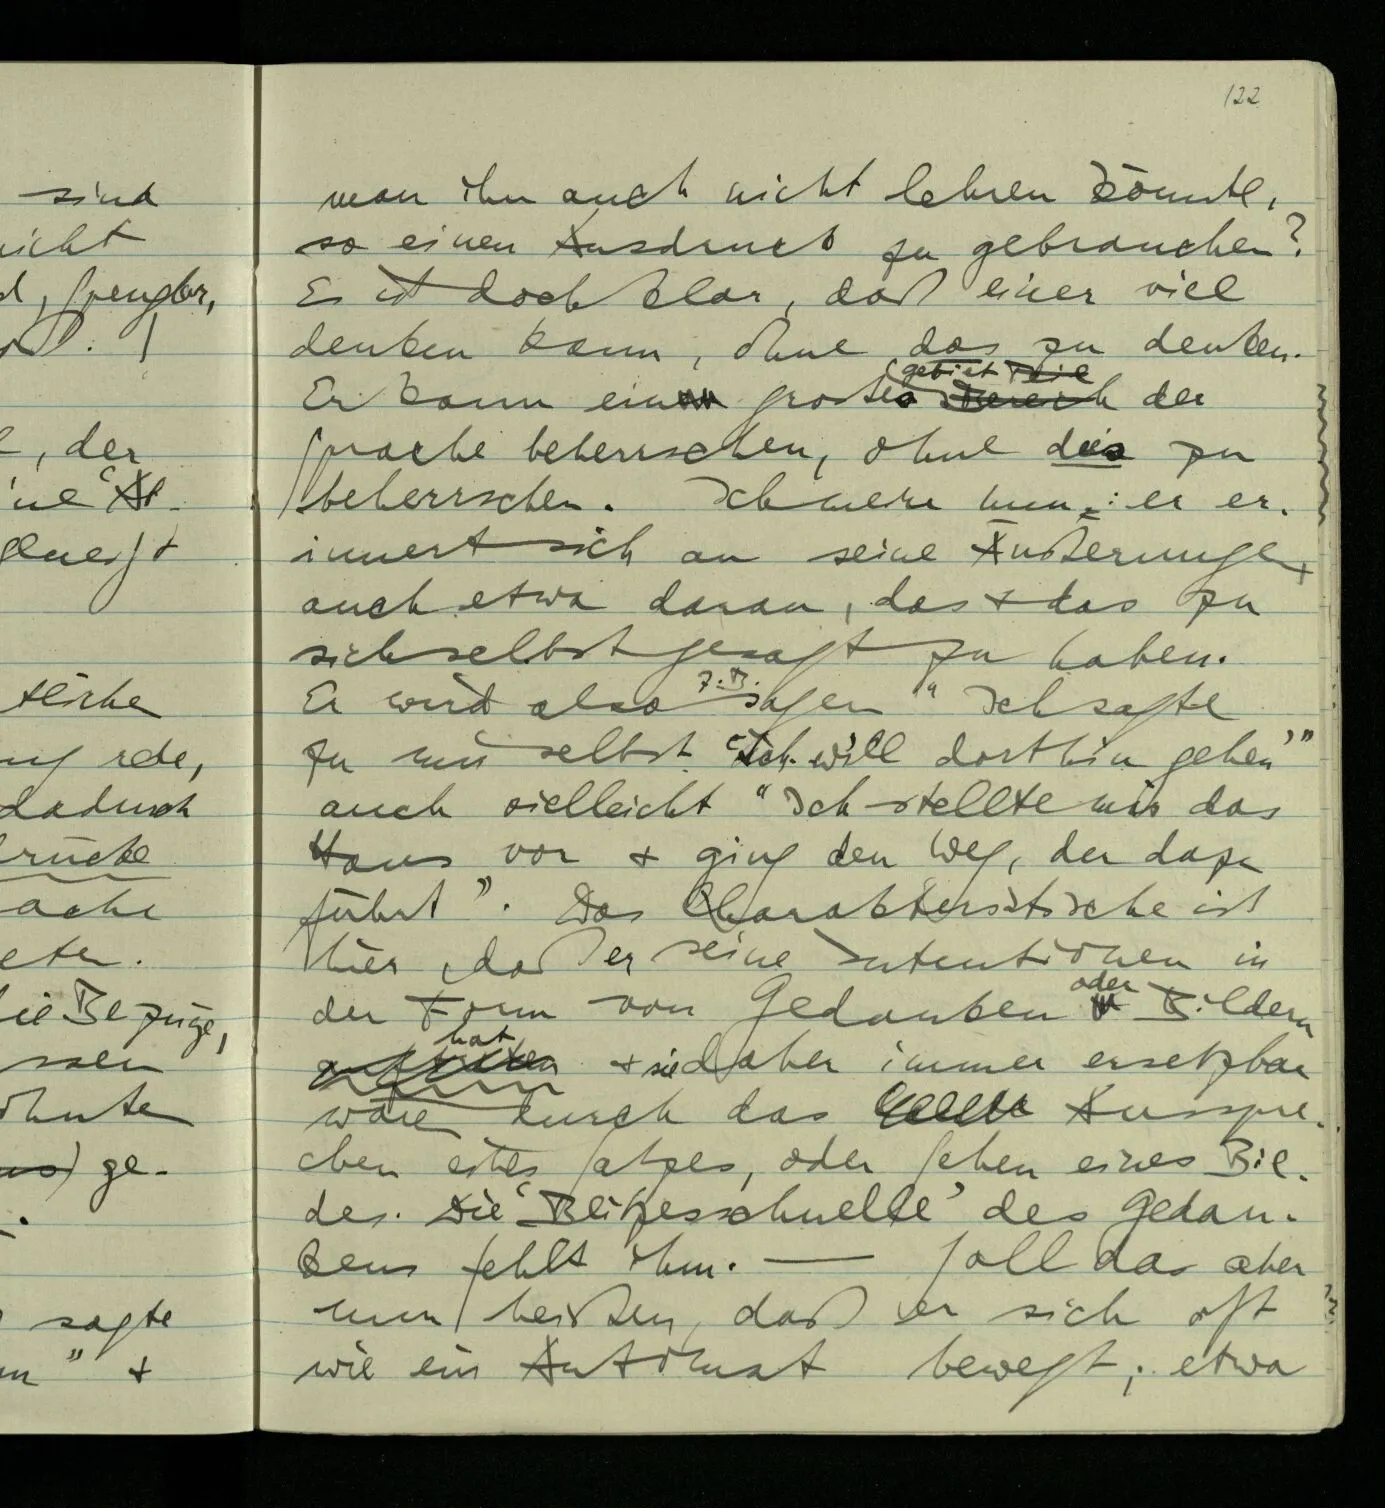 122
sind
nicht
, Spengler,
, der
geneigt
rede,
dadurch
brücke
ache
eten.
die Bezüge,
ssen
ohnte
ge-
sagte
" +
man ihn auch nicht lehren könnte,
so einen Ausdruck zu gebrauchen?
Es ist doch klar, daß einer viel
denken kann, ohne das zu denken.
gebiet Teil
Er kann ein großes Bereich der
Sprache beherrschen, ohne dies zu
beherrschen. Ich meine nun: er er-
innert sich an seine Äußerungen,
auch etwa daran, das + das zu
sich selbst gesagt zu haben.
z.B.
Er wird also sagen "Ich sagte
zu mir selbst 'Ich will dorthin gehen'"
auch vielleicht "Ich stellte mir das
Haus vor + ging den Weg, der dazu
führt". Das Charakteristische ist
hier, daß er seine Intentionen in
oder
der Form von Gedanken Bildern
hat
+ sie daher immer ersetzbar
wären durch das Ausspre-
chen eines Satzes, oder Sehen eines Bil-
des. Die 'Blitzesschnelle' des Gedan-
kens fehlt ihm. — Soll das aber
nun heißen, daß er sich oft
wie ein Automat bewegt; etwa